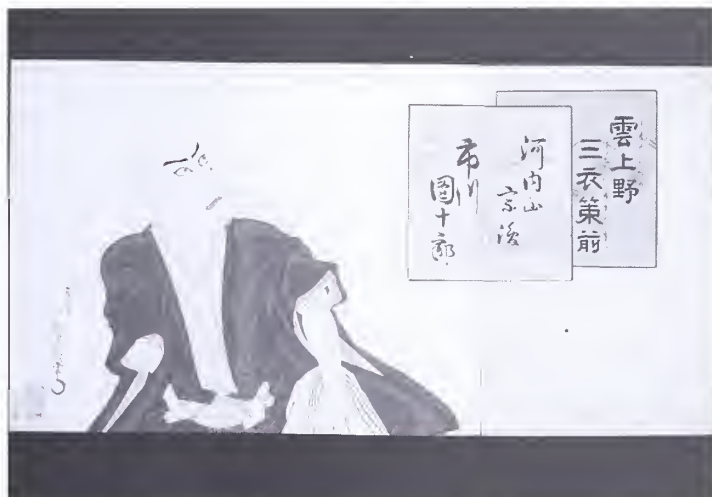 雲上野
三衣策前
河内山
宗俊
市川
團十郎